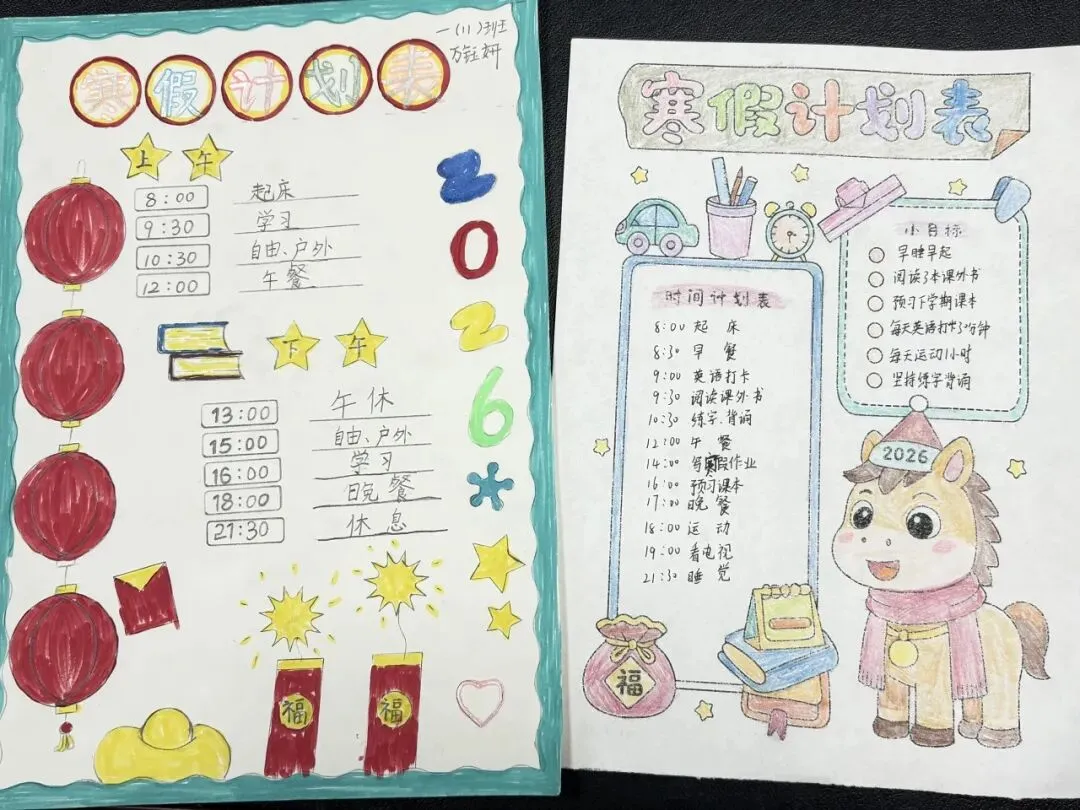 一(11)班
万钰妍
寒假计划表
上午
8:00 起床
9:30 学习
10:30 自由、户外
12:00 午餐
下午
13:00 午休
15:00 自由、户外
16:00 学习
18:00 晚餐
21:30 休息
2026
福 福
寒假计划表
小目标
早睡早起
阅读3本课外书
预习下学期课本
每天英语打卡3分钟
每天运动1小时
坚持练字背诵
时间计划表
8:00 起床
8:30 早餐
9:00 英语打卡
9:30 阅读课外书
10:30 练字、背诵
12:00 午餐
14:00 写寒假作业
16:00 预习课本
17:00 晚餐
18:00 运动
19:00 看电视
21:30 睡觉
2026
福